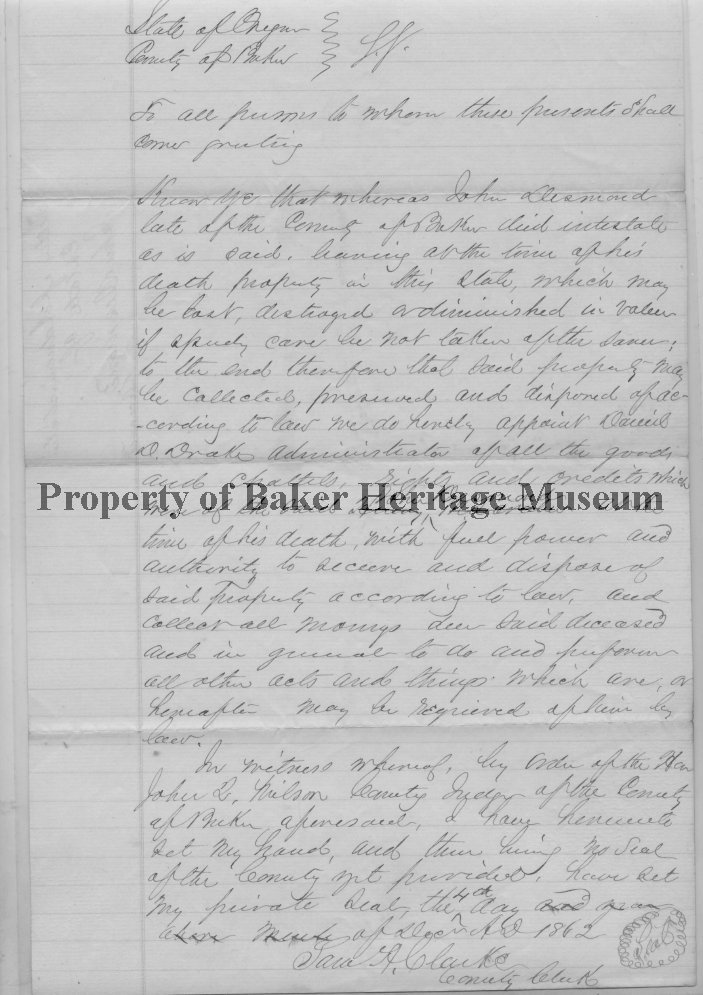 State of Oregon
County of Baker } S.S.
To all persons to whom these presents Shall
Come greeting
Know Ye that whereas John Desmond
late of the County of Baker died intestate
as is said, leaving at the time of his
death property in this State, which may
be lost, destroyed or diminished in value
if speedy care be not taken of the same;
to the end therefore that said property may
be Collected, preserved and disposed of ac-
-cording to law we do hereby appoint Daniel
D. Drake Administrator of all the goods
and chattels, rights and credits which
Property of Baker Heritage Museum
time of his death, with full power and
authority to secure and dispose of
said Property according to law, and
collect all moneys due said deceased
and in general to do and perform
all other acts and things which are, or
hereafter may be required of him by
law.
In witness whereof, by order of the Hon
John Q. Wilson County Judge of the County
of Baker aforesaid, I have hereunto
set my hand, and there being no Seal
of the County yet provided, have set
my private seal, the 4th day and year
above of Decr A.D. 1862
Sam A. Clarke
County Clerk
Seal